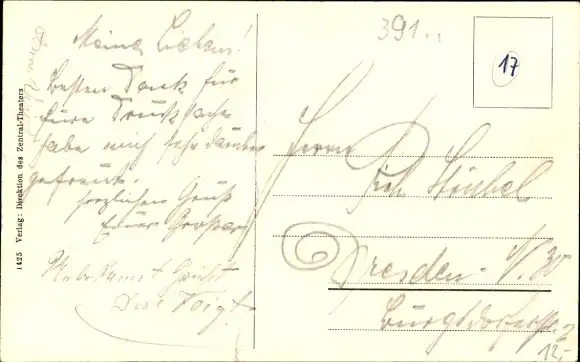 Meine Lieben!
besten Dank für
Eure Drucksache
habe mich sehr darüber
gefreut.
herzlichen Gruß
Euer
Unbekannt Grüßt
Voigt
1425 Verlag: Direktion des Zentral-Theaters
391..
17
Herrn
Rich. Stübel
Dresden - N. 30
Burgsdorfstr. 2
12,-